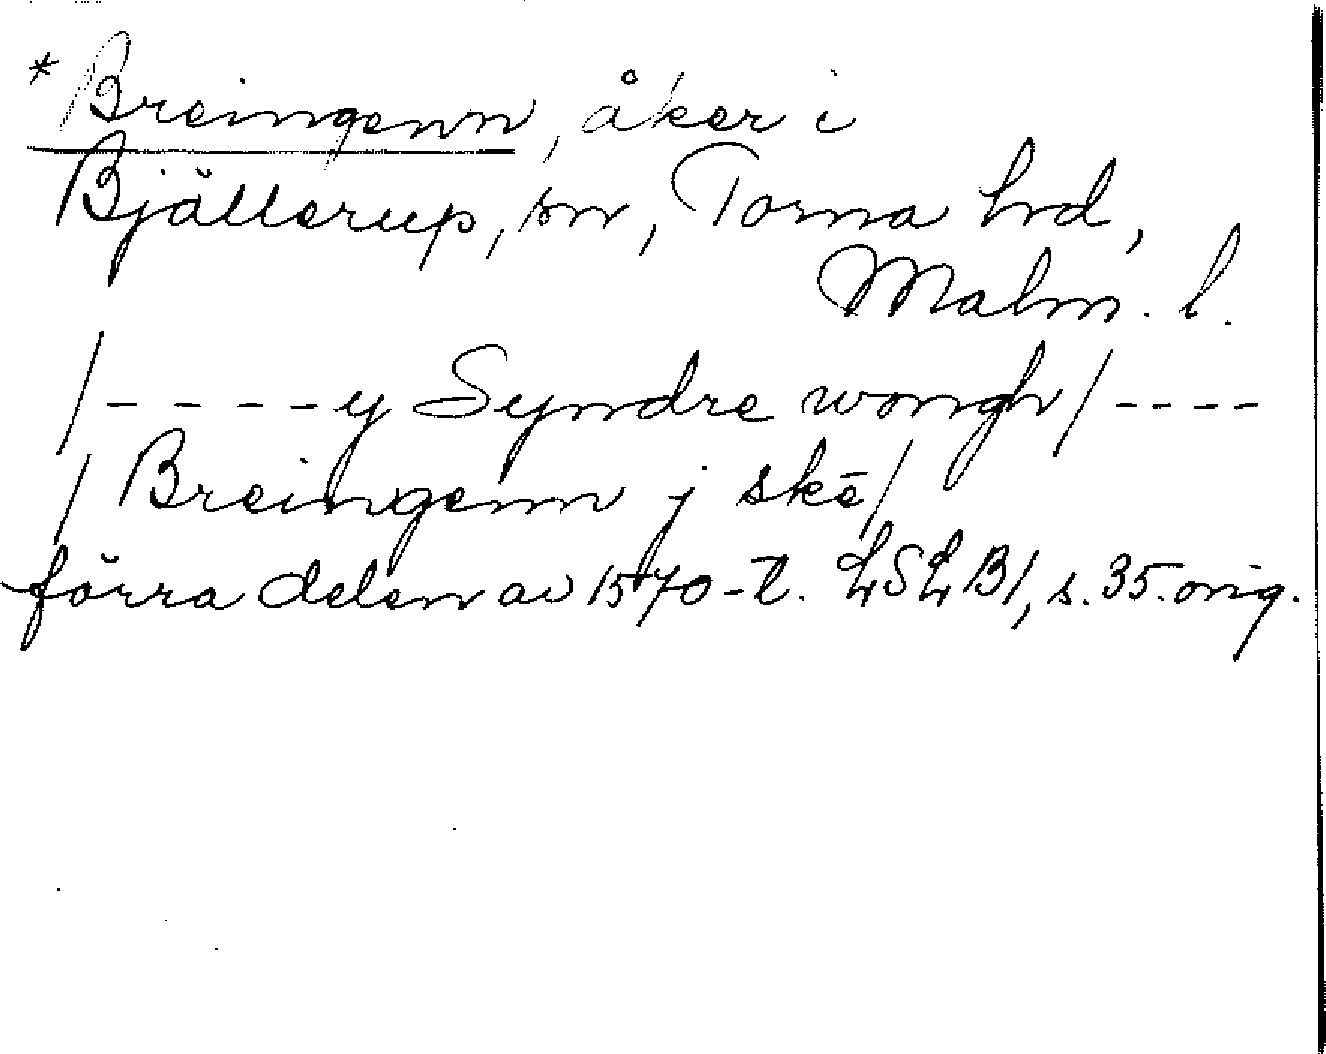 *Breingenn, åker i
Bjällerup, sn, Torna hd,
Malm. l.
/----y Syndre wongh/----
/Breingenn j skē/
förra delen av 1570-t. LSLB1, s. 35. orig.